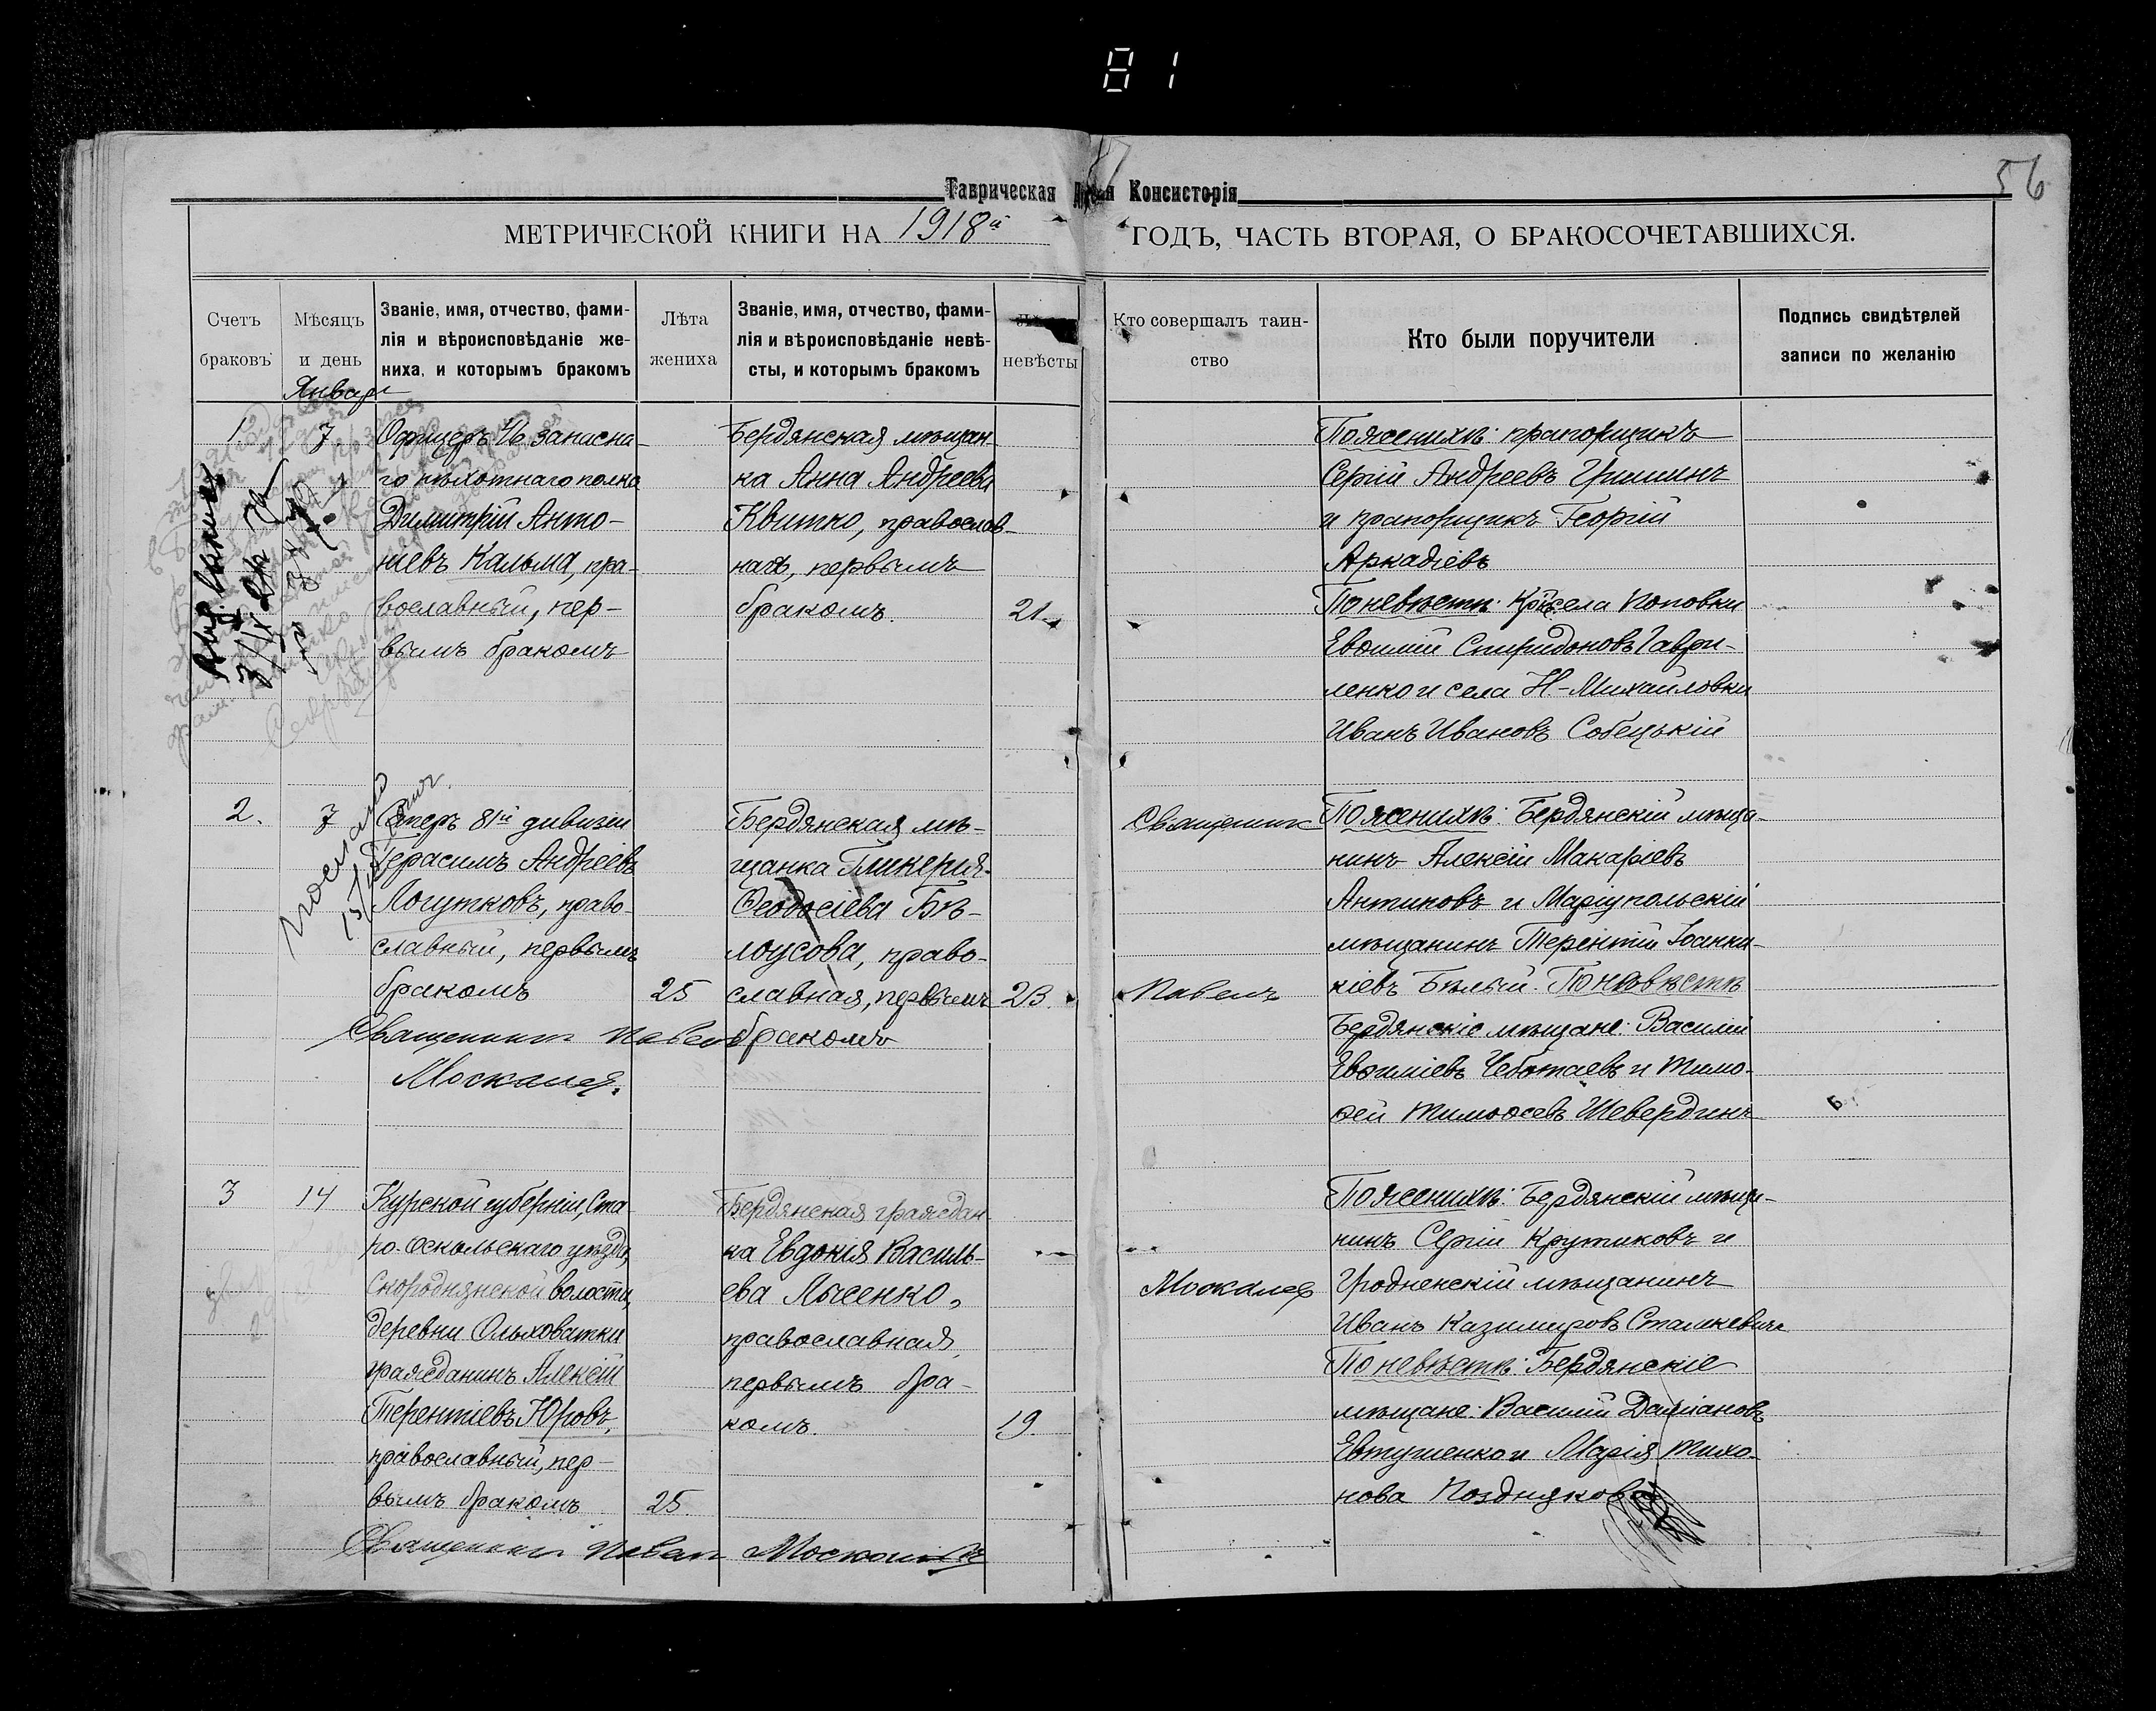 81
56
Таврическая Консисторія
МЕТРИЧЕСКОЙ КНИГИ НА 1918й ГОДЪ, ЧАСТЬ ВТОРАЯ, О БРАКОСОЧЕТАВШИХСЯ.
Счетъ браковъ
Мѣсяцъ и день
Званіе, имя, отчество, фами-
лія и вѣроисповѣданіе же-
ниха, и которымъ бракомъ
Лѣта жениха
Званіе, имя, отчество, фами-
лія и вѣроисповѣданіе невѣ-
сты, и которымъ бракомъ
невѣсты
Кто совершалъ таин-
ство
Кто были поручители
Подпись свидѣтелей
записи по желанію
Январь
1.
7
Офицеръ 46 запасна-
го пѣхотнаго полка
Димитрій Анто-
ніевъ Кальма, пра-
вославный, пер-
вымъ бракомъ
Бердянская мѣщан-
ка Анна Андреева
Квитко, православ-
ная, первымъ
бракомъ.
21.
По женихѣ: прапорщикъ
Сергій Андреевъ Гришинъ
и прапорщикъ Георгій
Аркадіевъ
По невѣстѣ: села Поповки
Евѳимій Спиридоновъ Гаври-
ленко и села Н-Михайловки
Иванъ Ивановъ Собецькій
2.
7
81й дивизіи
Герасимъ Андреевъ
Логутковъ, право-
славный, первымъ
бракомъ
25
Священникъ Павелъ
Москалев.
Бердянская мѣ-
щанка Гликерия
Ѳеодосіева Бѣ-
лоусова, право-
славная, первымъ
бракомъ
23.
Священник
Павелъ
Москалев
По женихѣ: Бердянскій мѣща-
нинъ Алексій Макаріевъ
Антиповъ и Маріупольскій
мѣщанинъ Терентій Іоанни-
кіевъ Бѣлый. По невѣстѣ
Бердянскіе мѣщане: Василій
Евѳиміевъ Чеботаевъ и Тимо-
ѳей Тимоѳеевъ Шевердинъ
3
14
Курской губерніи, Ста-
ро-Оскольскаго уѣзда,
Скороднянской волости,
деревни Ольховатки
гражданинъ Алексій
Терентіевъ Юровъ,
православный, пер-
вымъ бракомъ
25.
Бердянская граждан-
ка Евдокія Василь-
ева Лысенко,
православная,
первымъ бра-
комъ.
19.
По женихѣ: Бердянскій мѣща-
нинъ Сергій Крутиковъ и
Гродненскій мѣщанинъ
Иванъ Казимировъ Сталкевичъ
По невѣстѣ: Бердянскіе
мѣщане: Василій Даміановъ
Евтушенко и Марія Тихо-
нова Позднякова
Священникъ Павел Москалев